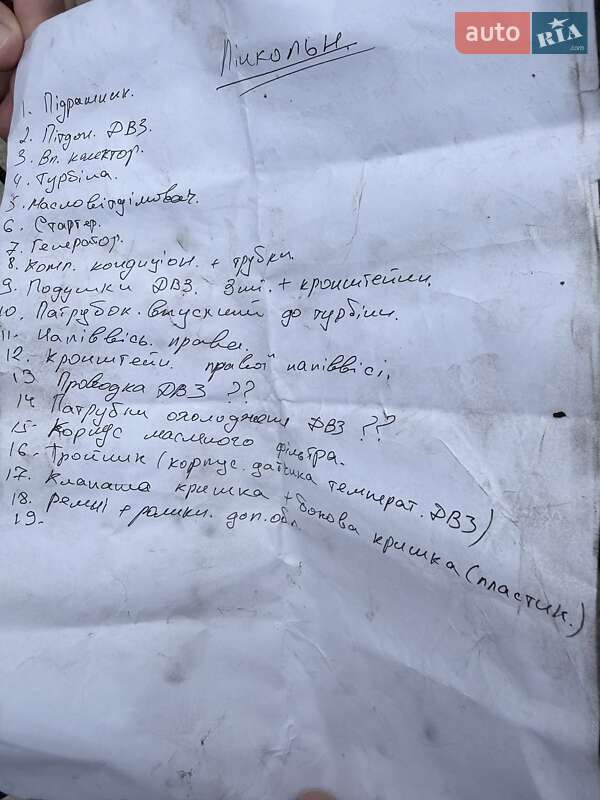 auto RIA .com
Лінкольн.
1. Підрамник.
2. Піддон. ДВЗ.
3. Вп. колектор.
4. Турбіна.
5. Масловідділювач.
6. Стартер.
7. Генератор.
8. Комп. кондиціон. + трубки.
9. Подушки ДВЗ. 3ші. + кронштейни.
10. Патрубок. впускний до турбіни.
11. Напіввісь. права.
12. Кронштейн. правої напіввісі.
13 Проводка ДВЗ ??
14 Патрубки охолодження ДВЗ ??
15. Корпус масляного фільтра.
16. Тройник (корпус. датчика температ. ДВЗ)
17. Клапана кришка + бокова кришка (пластик.)
18. Ремні + ролики. доп. обл.
19.